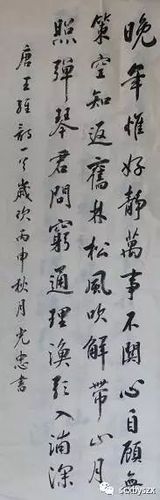 晚年惟好靜萬事不關心自顧無
策空知返舊林松風吹解帶山月
照彈琴君問窮通理漁歌入浦深
唐王維詩一首歲次丙申秋月光忠書
scxbyszx